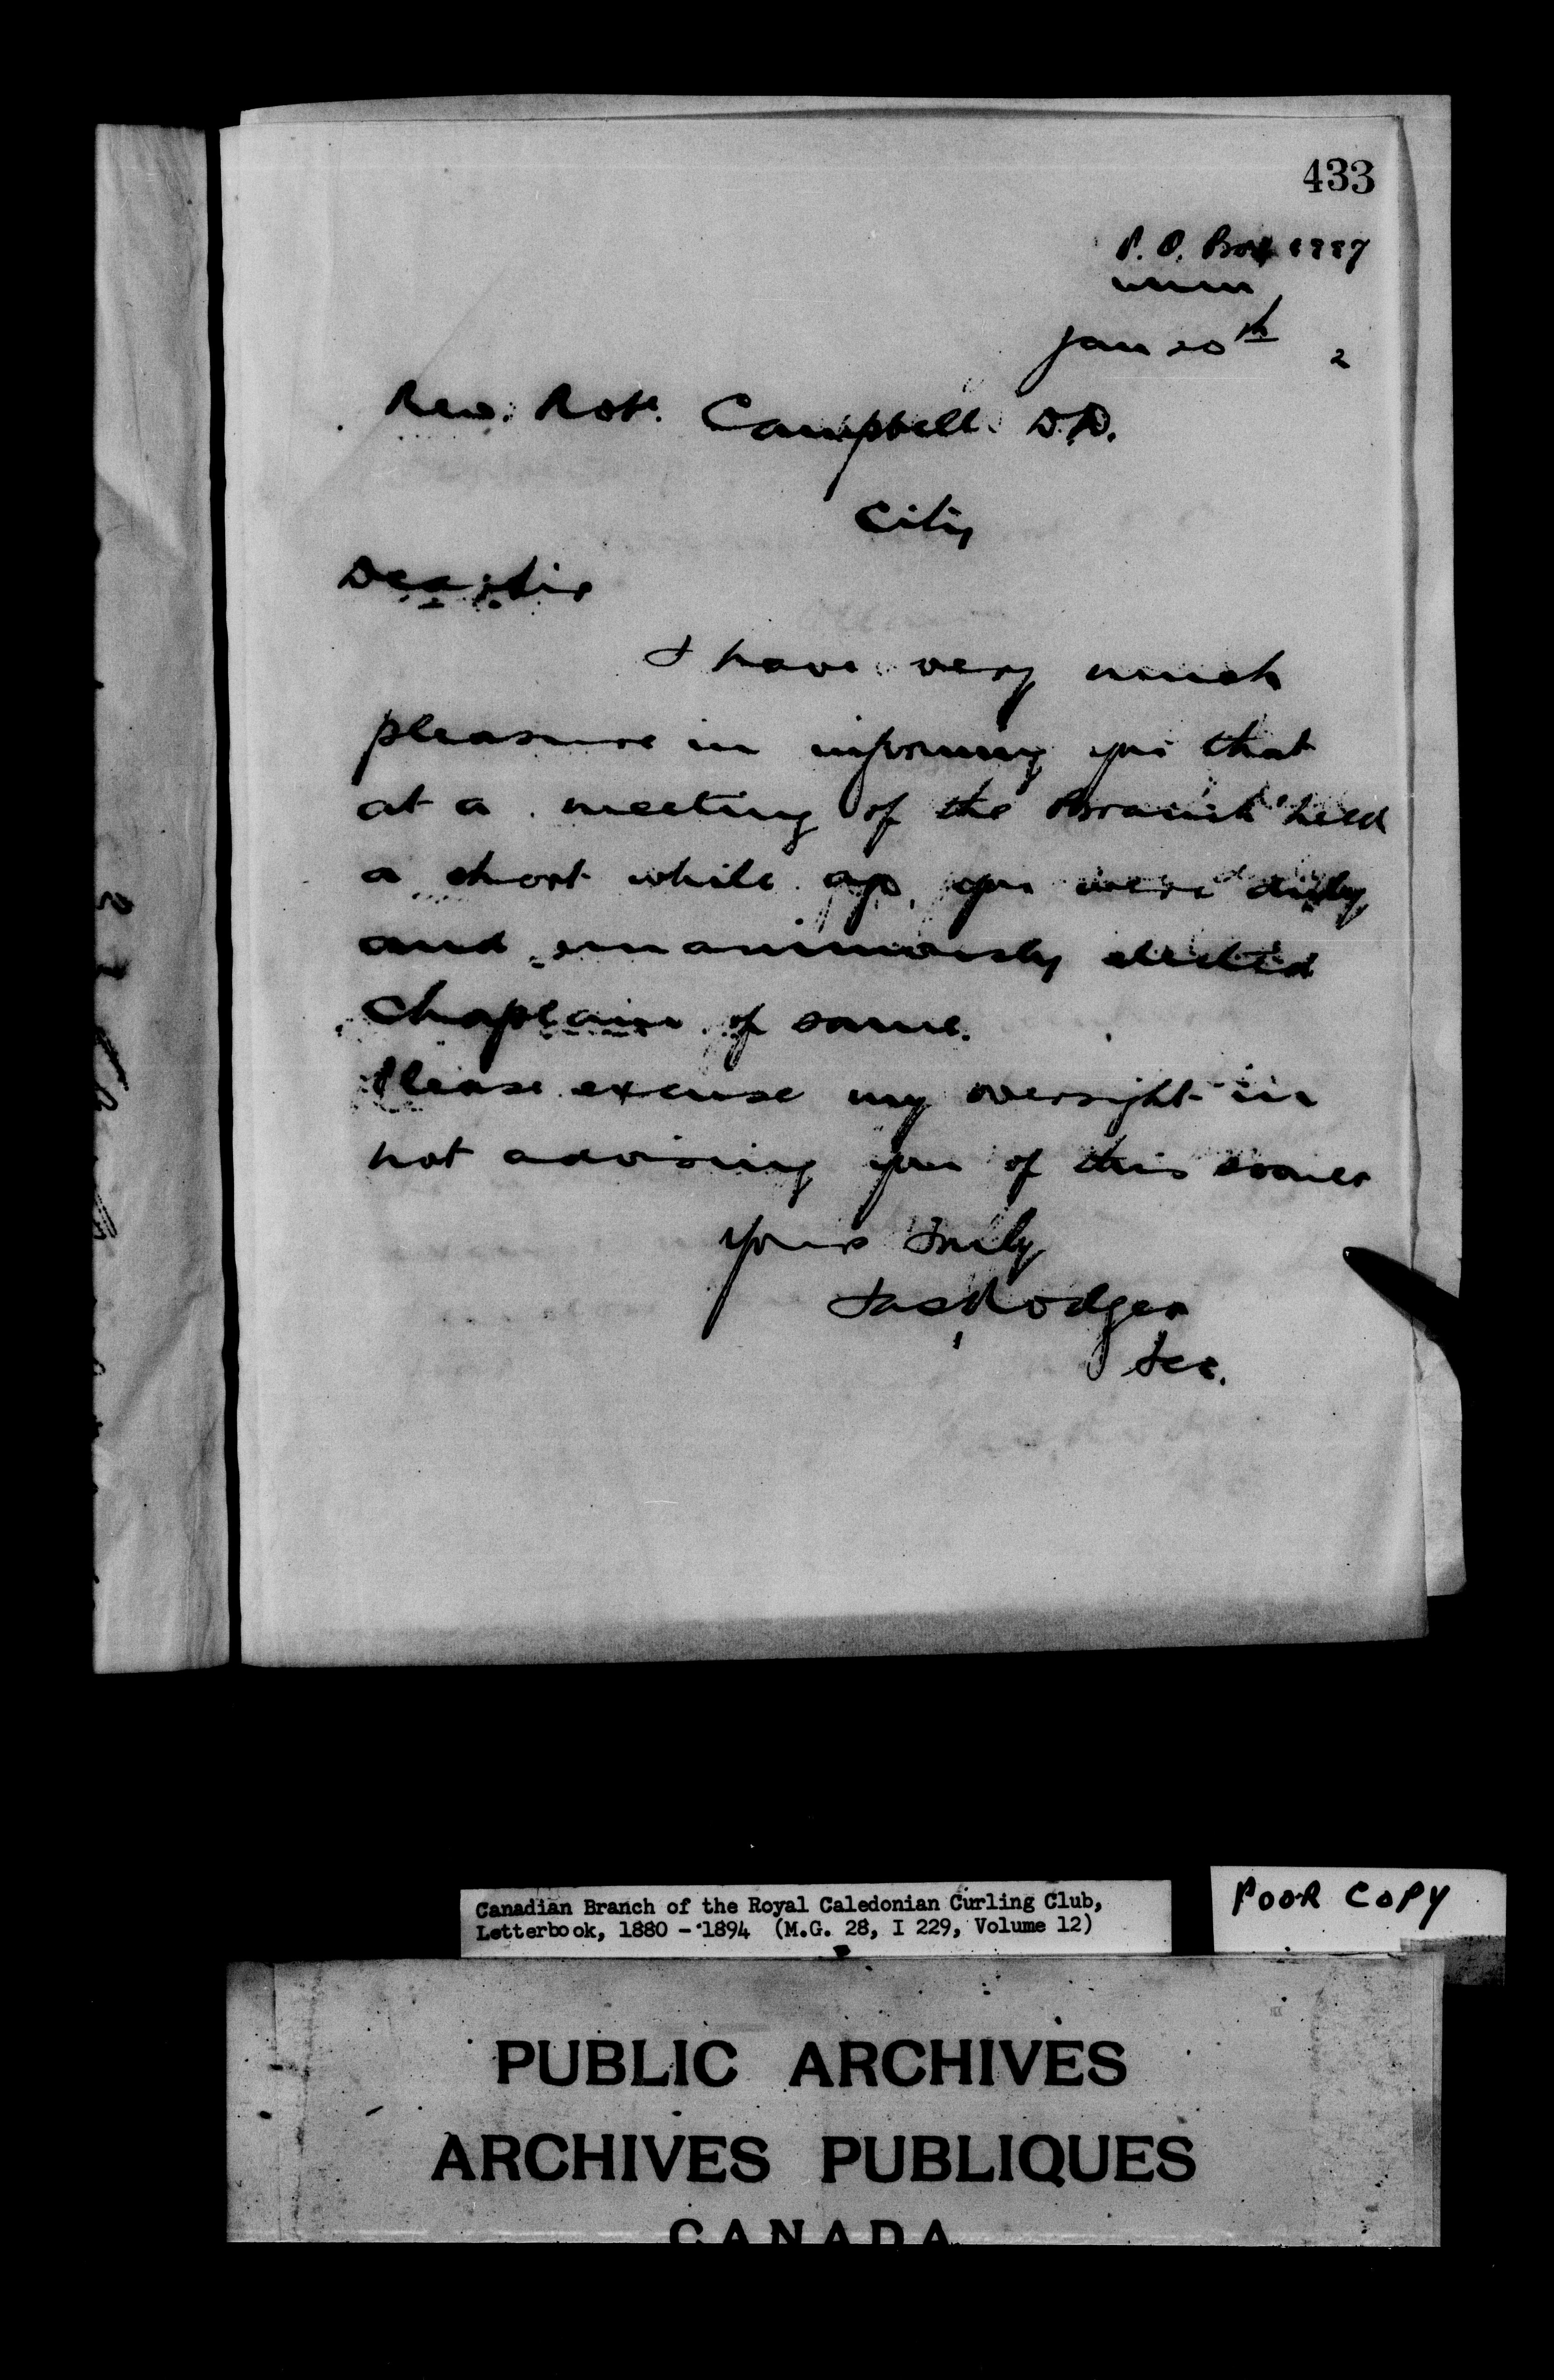 433
P. O. Box 1887
Jan 20th 2
Rev. Robt. Campbell D.D.
City
Dear Sir
I have very much
pleasure in informing you that
at a meeting of the Branch held
a short while ago, you were duly
and unanimously elected
Chaplain of same.
Please excuse my oversight in
not advising you of this sooner
Yours truly
Jas Rodger
Sec.
Canadian Branch of the Royal Caledonian Curling Club,
Letterbook, 1880 - 1894 (M.G. 28, I 229, Volume 12)
POOR COPY
PUBLIC ARCHIVES
ARCHIVES PUBLIQUES
CANADA